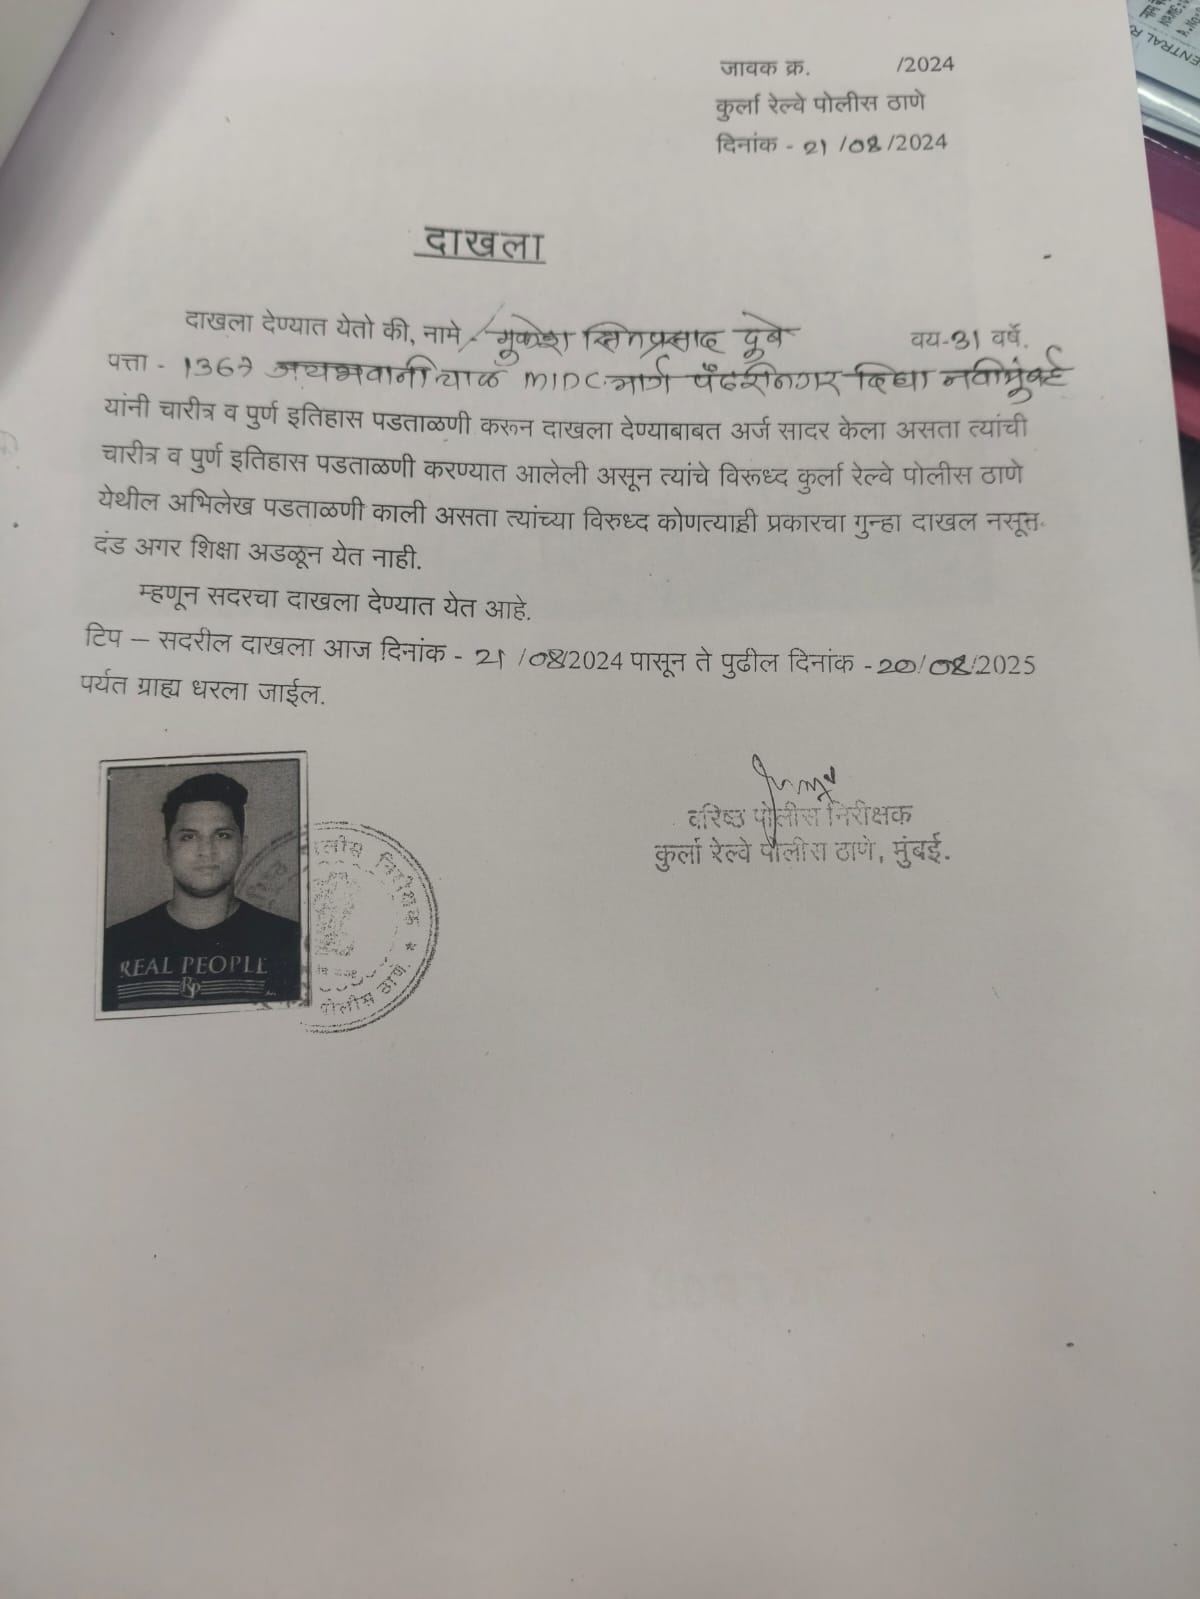 जावक क्र. /2024
कुर्ला रेल्वे पोलीस ठाणे
दिनांक - 21/08/2024
दाखला
दाखला देण्यात येतो की, नामे मुकेश दुबे वय-31 वर्षे.
पत्ता - 1367 जयभवानी चाळ MIDC मार्ग पंढरीनगर दिघा नवीमुंबई
यांनी चारीत्र व पुर्ण इतिहास पडताळणी करून दाखला देण्याबाबत अर्ज सादर केला असता त्यांची
चारीत्र व पुर्ण इतिहास पडताळणी करण्यात आलेली असून त्यांचे विरूध्द कुर्ला रेल्वे पोलीस ठाणे
येथील अभिलेख पडताळणी काली असता त्यांच्या विरुध्द कोणत्याही प्रकारचा गुन्हा दाखल नसून
दंड अगर शिक्षा अडळून येत नाही.
म्हणून सदरचा दाखला देण्यात येत आहे.
टिप – सदरील दाखला आज दिनांक - 21/08/2024 पासून ते पुढील दिनांक - 20/08/2025
पर्यत ग्राह्य धरला जाईल.
वरिष्ठ पोलीस निरीक्षक
कुर्ला रेल्वे पोलीस ठाणे, मुंबई.
REAL PEOPLE
RP
निरीक्षक
पोलीस ठाणे